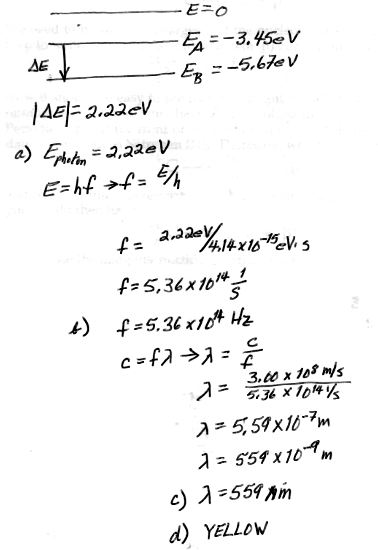 E=0
E_A = -3.45eV
ΔE
E_B = -5.67eV
|ΔE|= 2.22eV
a) E_photon = 2.22eV
E=hf → f= E/h
f= 2.22eV/4.14x10⁻¹⁵eV·s
f= 5.36 x 10¹⁴ 1/s
b) f=5.36 x 10¹⁴ Hz
c=fλ → λ = c/f
λ = 3.00 x 10⁸ m/s / 5.36 x 10¹⁴ 1/s
λ = 5.59 x 10⁻⁷m
λ = 559 x 10⁻⁹ m
c) λ=559 nm
d) YELLOW